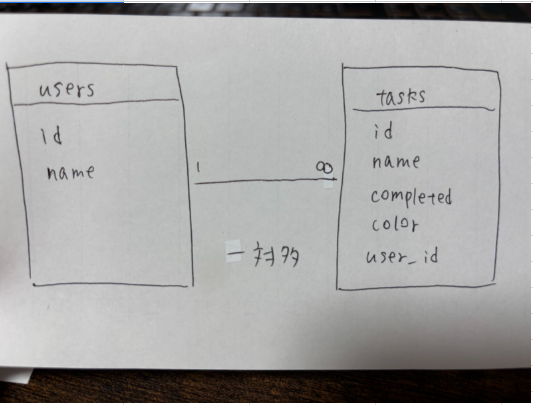 users
id
name
1 ∞
tasks
id
name
completed
color
user_id